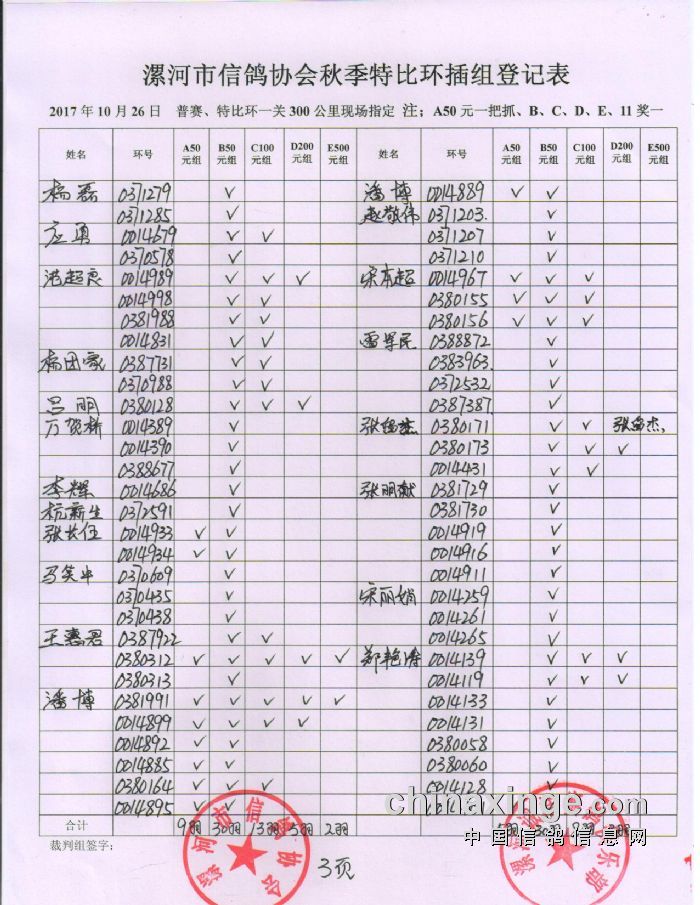 漯河市信鸽协会秋季特比环插组登记表
2017 年 10 月 26 日 普赛、特比环一关 300 公里现场指定 注；A50 元一把抓、B、C、D、E、11 奖一
姓名 环号 A50元组 B50元组 C100元组 D200元组 E500元组 姓名 环号 A50元组 B50元组 C100元组 D200元组 E500元组
杨磊 0371279 ✓ 潘博 0014889 ✓ ✓
0371285 ✓ 赵敬伟 0371203 ✓
应勇 0014679 ✓ ✓ 0371207 ✓
0370578 ✓ 0371210 ✓
超良 0014989 ✓ ✓ ✓ 宋东超 0014967 ✓ ✓ ✓
0014998 ✓ ✓ 0380155 ✓ ✓ ✓
0381988 ✓ ✓ 0380156 ✓ ✓ ✓
0014831 ✓ ✓ 民 0388872 ✓
杨团家 0387731 ✓ ✓ 0383963 ✓
0370988 ✓ ✓ 0372532 ✓
吕明 0380128 ✓ ✓ ✓ 0387387 ✓
万贺桥 0014389 ✓ 张杰 0380171 ✓ ✓ 张杰
0014390 ✓ 0380173 ✓ ✓ ✓
0388677 ✓ 0014431 ✓ ✓
李辉 0014686 ✓ 张明献 0381729 ✓
杭新生 0372591 ✓ 0381730 ✓
张长伍 0014933 ✓ ✓ 0014919 ✓
0014934 ✓ ✓ 0014916 ✓
马笑 0370609 ✓ 0014911 ✓
0370435 ✓ 宋丽娟 0014259 ✓
0370438 ✓ 0014261 ✓
王惠君 0387922 ✓ ✓ 0014265 ✓
0380312 ✓ ✓ ✓ ✓ ✓ 郑艳涛 0014139 ✓ ✓ ✓
0380313 ✓ 0014119 ✓ ✓ ✓
潘博 0381991 ✓ ✓ ✓ ✓ ✓ 0014133 ✓
0014899 ✓ ✓ ✓ ✓ 0014131 ✓
0014892 ✓ ✓ 0380058 ✓
0014885 ✓ ✓ 0380060 ✓
0380164 ✓ ✓ ✓ 0014128 ✓
0014895 ✓ ✓
合计 9羽 30羽 13羽 5羽 2羽 30羽
裁判组签字：
3页
漯河市信鸽协会
chinaxinge.com
中国信鸽信息网